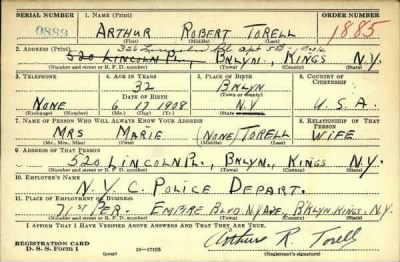 SERIAL NUMBER 1. NAME (Print) ORDER NUMBER
ARTHUR ROBERT TORELL 1885
(First) (Middle) (Last)
2. ADDRESS (Print)
520 LINCOLN PL., BKLYN., KINGS N.Y.
(Number and street or R. F. D. number) (Town) (County) (State)
3. TELEPHONE 4. AGE IN YEARS 5. PLACE OF BIRTH 6. COUNTRY OF CITIZENSHIP
32 BKLYN
DATE OF BIRTH (Town or county)
NONE 6 17 1908 N.Y U.S.A.
(Exchange) (Number) (Mo.) (Day) (Yr.) (State or country)
7. NAME OF PERSON WHO WILL ALWAYS KNOW YOUR ADDRESS 8. RELATIONSHIP OF THAT PERSON
MRS MARIE (NONE) TORELL WIFE
(Mr., Mrs., Miss) (First) (Middle) (Last)
9. ADDRESS OF THAT PERSON
520 LINCOLN PL., BKLYN., KINGS N.Y.
(Number and street or R. F. D. number) (Town) (County) (State)
10. EMPLOYER'S NAME
N.Y.C. POLICE DEPART.
11. PLACE OF EMPLOYMENT OR BUSINESS
71ST PER. EMPIRE BLVD. N.Y AVE. BKLYN. KINGS. N.Y.
(Number and street or R. F. D. number) (Town) (County) (State)
I AFFIRM THAT I HAVE VERIFIED ABOVE ANSWERS AND THAT THEY ARE TRUE.
REGISTRATION CARD
D. S. S. Form 1 (over) 16—17105 Arthur R. Torell
(Registrant's signature)